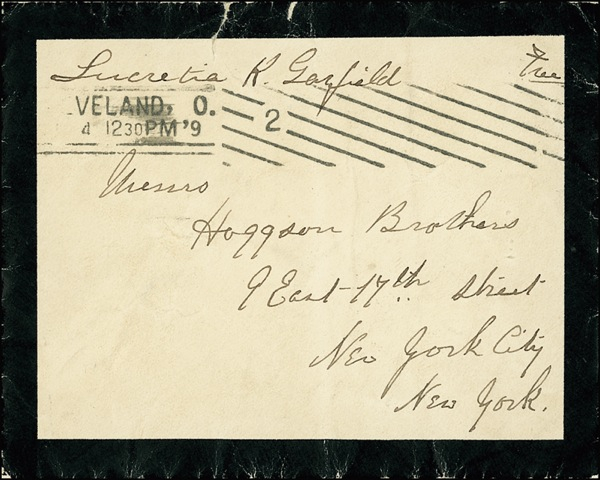 Lucretia R. Garfield Free
VELAND, O.
4 1230PM '9
2
Messrs
Hoggson Brothers
9 East 17th Street
New York City
New York.